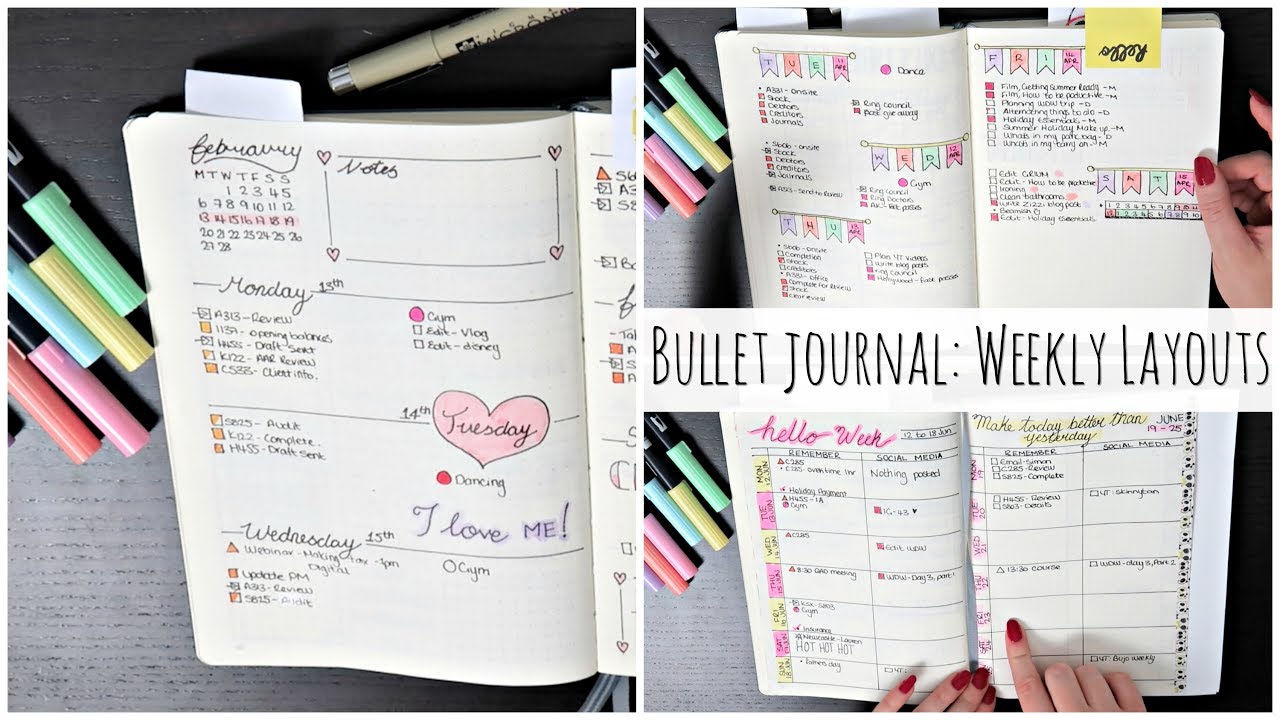 MICRON
february
M T W T F S S
1 2 3 4 5
6 7 8 9 10 11 12
13 14 15 16 17 18 19
20 21 22 23 24 25 26
27 28
Notes
Monday 13th
A313 - Review
1139 - opening balances
H455 - Draft sent
K122 - AAR Review
C533 - Client info.
Gym
Edit - Vlog
Edit - disney
14th Tuesday
S825 - Audit
K122 - Complete.
H455 - Draft sent
Dancing
I love ME!
Wednesday 15th
Webinar - Making Tax - 1pm
Digital
Update PM
A313 - Review
S825 - Audit
Gym
TUE 11 APR
A331 - Onsite
Stock
Debtors
Creditors
Journals
Dance
Ring council
Post give away
Sbob - onsite
Stock
Debtors
Creditors
Journals
A313 - Send to Review
WED 12 APR
Gym
Ring council
Ring Doctors
THU 13 APR
Sbob - onsite
Completion
Stock
Creditors
A331 - office
Complete for review
Stock
clear review
Plan YT videos
Write blog posts
Ring council
Hollywood - Fast passes
hello
FRI 14 APR
Film, Getting Summer Ready - M
Film, How to be productive - M
Planning WDW trip - D
Alternative things to do - D
Holiday Essentials - M
Summer Holiday Make up - M
Whats in my park bag - D
Whats in my carry on - M
SAT 15 APR
Edit - How to be productive
Ironing
Clean bathrooms
Write Zizzi blog post
Beamish
Edit - Holiday Essentials
Bullet journal: Weekly Layouts
hello Week 12 to 18 Jun
REMEMBER SOCIAL MEDIA
MON 12 JUN
C285
C285 - overtime 1hr
Holiday Payment
Nothing posted
TUE 13 JUN
H455 - 1A
Gym
IG - 43
WED 14 JUN
C285
Edit WDW
THU 15 JUN
8:30 QAD meeting
WDW - Day 3, part 1
FRI 16 JUN
KSX - S803
Gym
Insurance
SAT 17 JUN
Newcastle - Lauren
HOT HOT HOT
SUN 18 JUN
Fathers day
Make today better than
yesterday
JUNE
19 - 25
REMEMBER SOCIAL MEDIA
MON 19
Email - simon
C285 - Review
S825 - Complete
TUE 20
H455 - Review
S803 - Details
YT - Skinnytan
WED 21
THU 22
13:30 course
WDW - day 3, Part 2
FRI 23
SAT 24
YT - Bujo weekly